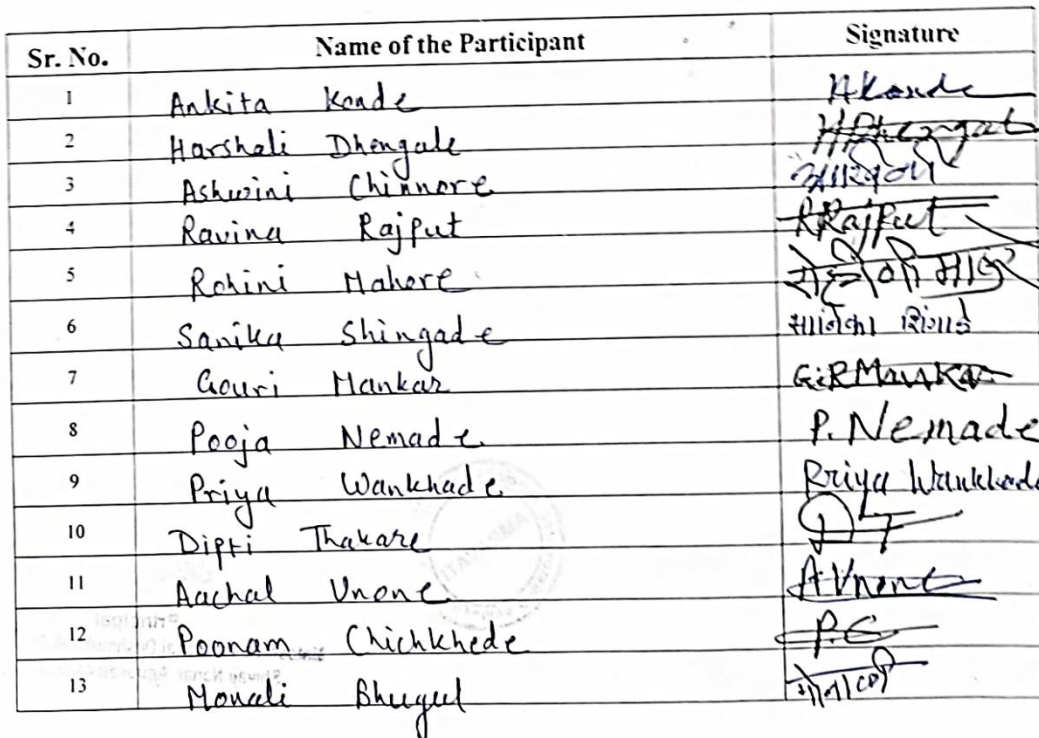 Sr. No. Name of the Participant Signature
1 Ankita Konde AKonde
2 Harshali Dhengale
3 Ashwini Chinnore अश्विनी
4 Ravina Rajput RRajput
5 Rohini Mahore
6 Sanika Shingade सानिका शिंगाडे
7 Gouri Mankar G.R Mankar
8 Pooja Nemade P. Nemade
9 Priya Wankhade Priya Wankhade
10 Dipti Thakare DT
11 Aachal Unone A.Unone
12 Poonam Chichkhede P.C
13 Monali Bhugul